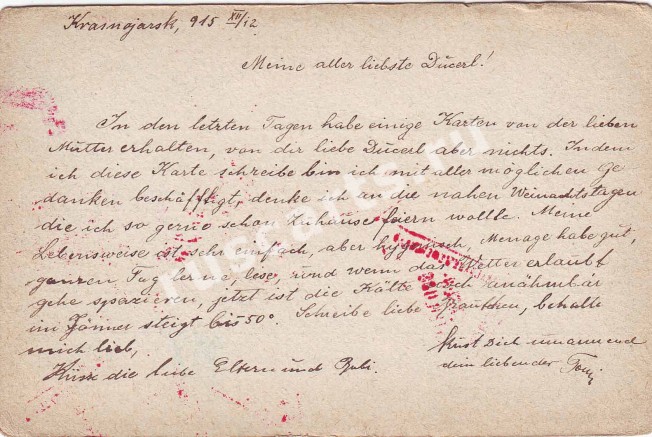 Krasnojarsk, 915 XII/12
Meine aller liebste Ducerl!
In den letzten Tagen habe einige Karten von der lieben
Mutter erhalten, von dir liebe Ducerl aber nichts. Indem
ich diese Karte schreibe bin ich mit aller möglichen Ge
danken beschäfftigt, denke ich an die nahen Weinachtstagen
die ich so gerne schon Zuhause feiern wollte. Meine
Lebensweise ist sehr einfach, aber hygienisch, Menage habe gut,
ganzen Tag lerne, lese, und wenn das Wetter erlaubt
gehe spazieren, jetzt ist die Kälte noch anähmbar
im Jänner steigt bis 50°. Schreibe liebe behalte
mich lieb,
Küst Dich umarmend
Küsse die liebe Eltern und
dein liebender